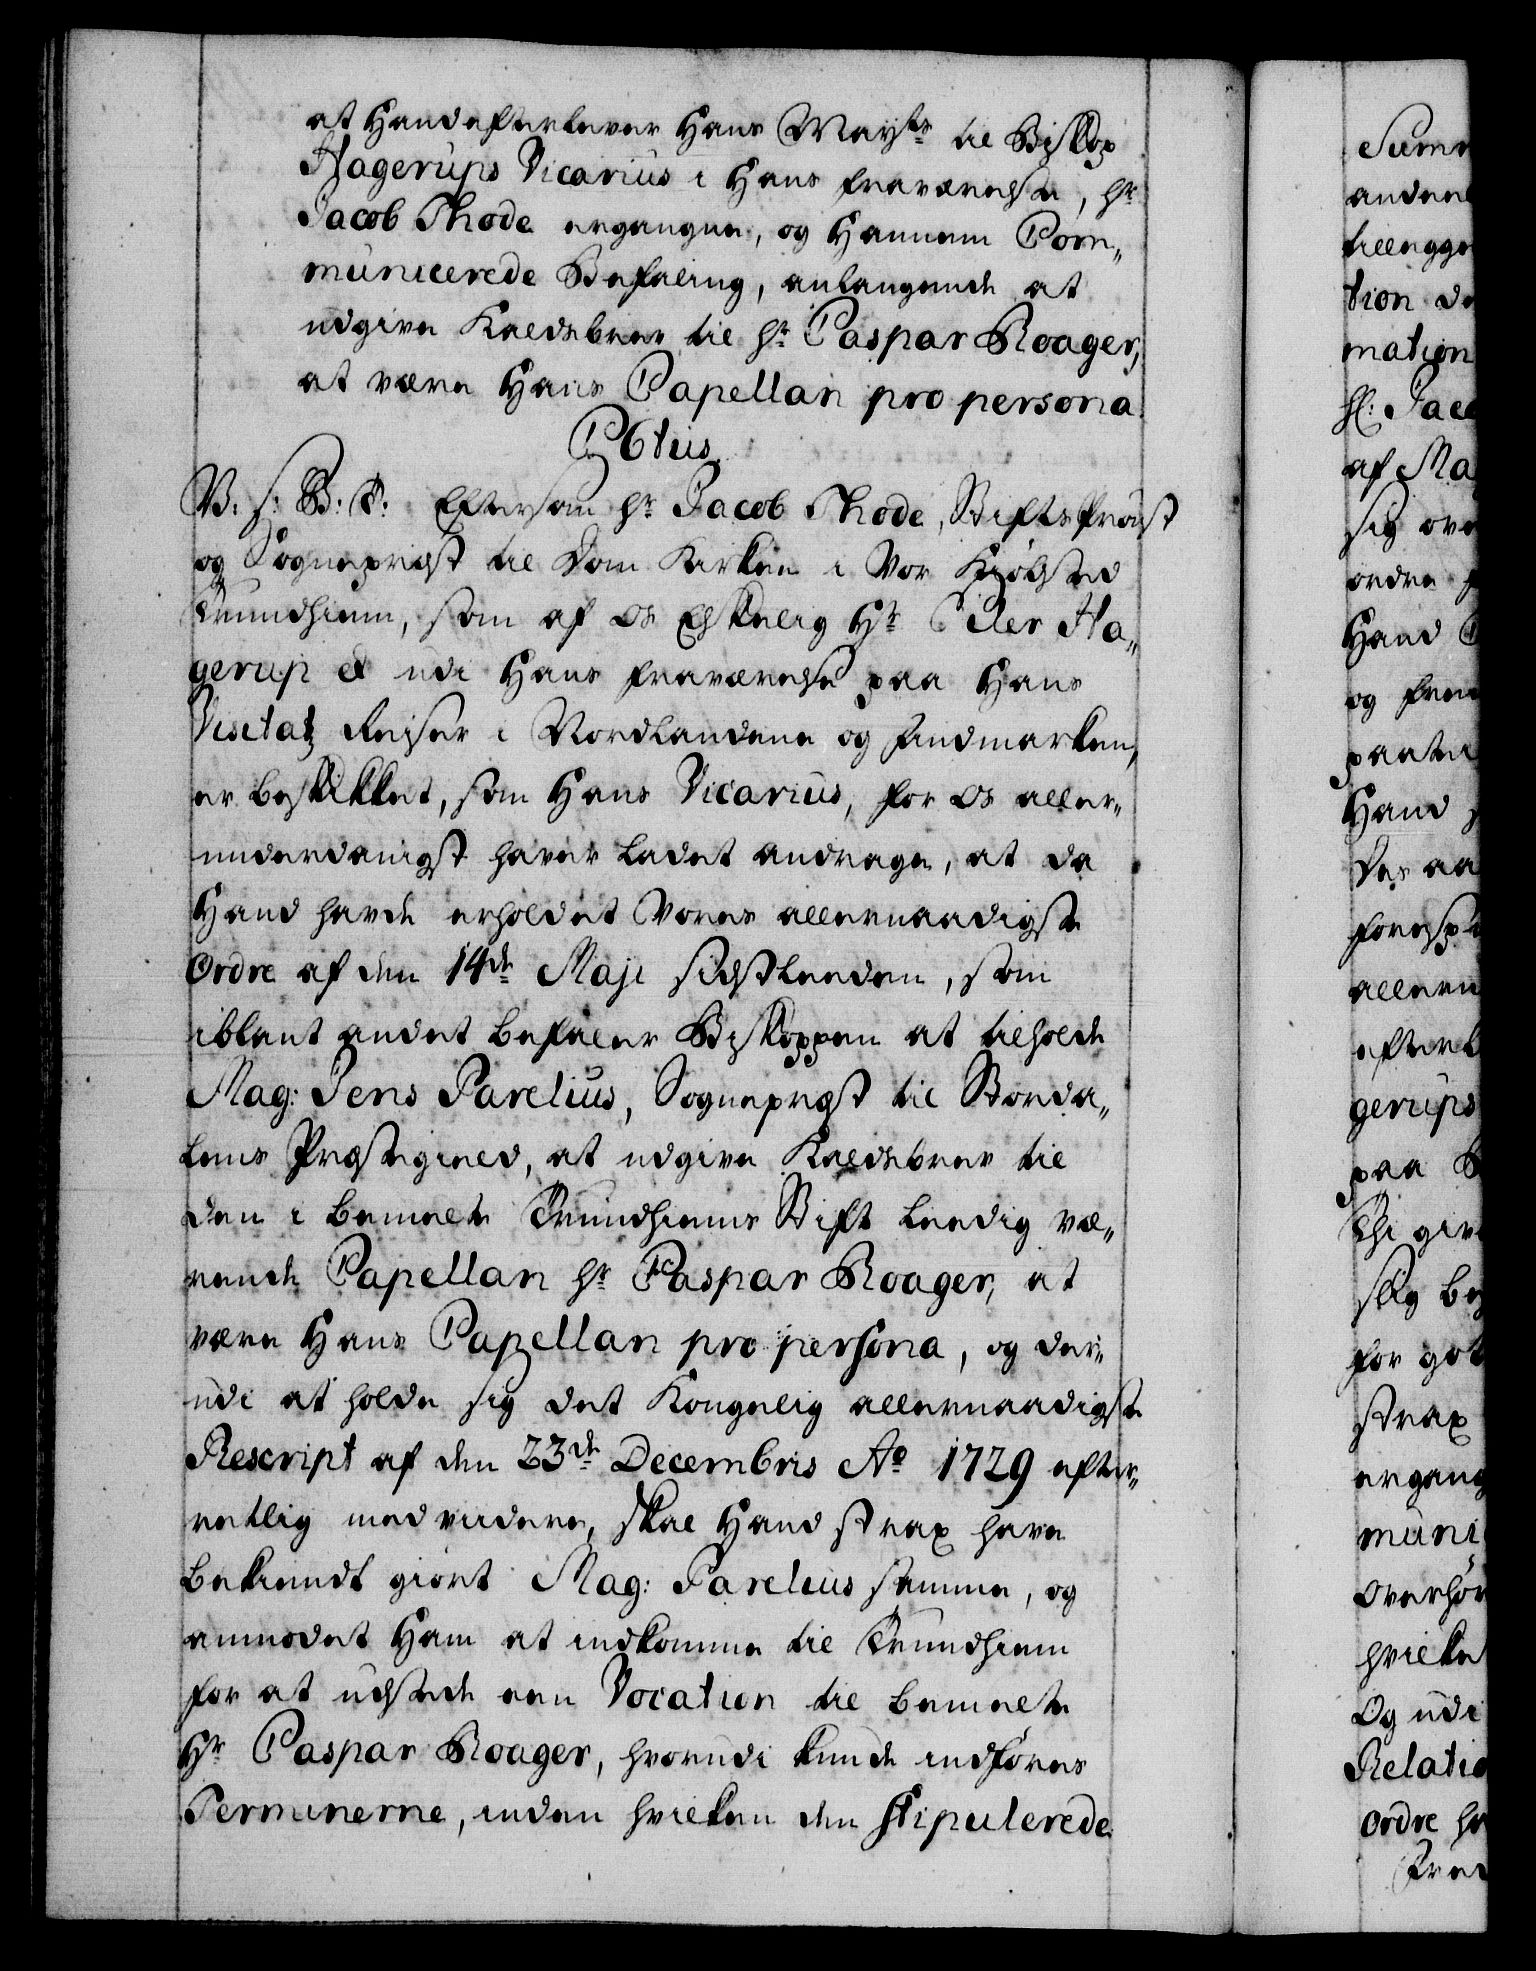 at Hand efterlever Hans Mayts til Biskop
Hagerups Vicarius i Hans fraværelse, hr
Jacob Thode ergangne, og Hannem Com„
municerede Befaling, anlangende at
udgive Kaldsbrev til hr Caspar Roager,
at være Hans Capellan pro persona.
C6tus.
V. S: B: T: Eftersom hr Jacob Thode, Stifts Provst
og Sognepræst til Dom Kirken i Vor Kiøbsted
Trundhiem, som af os Elskelig Hr Eiler Ha„
gerup udi Hans fraværelse paa Hans
Visitatz Reiser i Nordlandene og Findmarken,
er beskikket, som Hans Vicarius, for os aller„
underdanigst haver ladet andrage, at da
Hand havde erholdet Vores allernaadigste
Ordre af den 14de Maji sidstleeden, som
iblant andet befaler Biskoppen at tilholde
Mag: Jens Parelius, Sognepræst til Størda„
lens Præstegield, at udgive Kaldsbrev til
den i bemelte Trundhiems Stift leedig væ„
rende Capellan hr Caspar Roager, at
være Hans Capellan pro persona, og der„
udi at holde sig det Kongelig allernaadigste
Rescript af den 23de Decembris Ao 1729 efter„
retlig med viidere, skal Hand strax have
bekiendt giort Mag: Parelius samme, og
anmodet Ham at indkomme til Trundhiem
for at udstede een Vocation til bemelte
Hr Caspar Roager, hvorudi kunde indføres
Terminerne, inden hvilken den stipulerede
Sum
andre
tillegge
tion de
mation
hl: Jaco
af Ma
sig ove
ordre
Hand
og fre
paate
Hand
des aa
forresp
allern
efterl
gerups
paa
Thi give
slig be
for got
strax
ergang
muni
overhør
hvilke
Og udi
Relatio
ordre ha